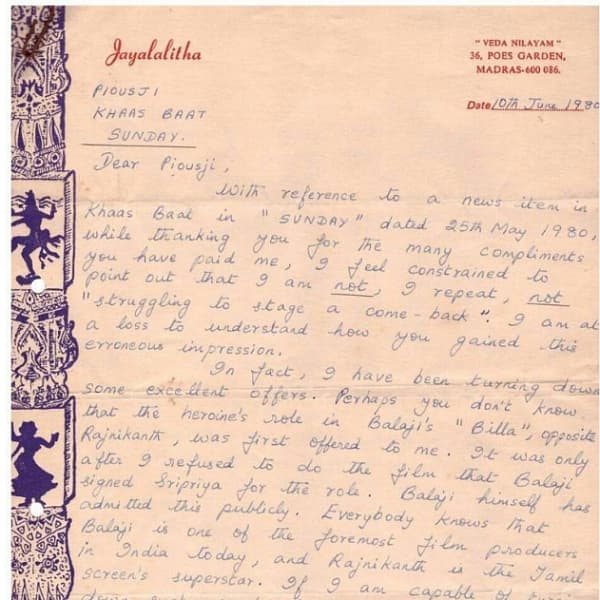 Jayalalitha
" VEDA NILAYAM "
36, POES GARDEN,
MADRAS-600 086.
Date 10th June 1980
PIOUSJI
KHAAS BAAT
SUNDAY.
Dear Piousji,
With reference to a news item in
Khaas Baat in "SUNDAY" dated 25th May 1980,
while thanking you for the many compliments
you have paid me, I feel constrained to
point out that I am not, I repeat, not
"struggling to stage a come-back". I am at
a loss to understand how you gained this
erroneous impression.
In fact, I have been turning down
some excellent offers. Perhaps you don't know
that the heroine's role in Balaji's "Billa", opposite
Rajnikanth, was first offered to me. It was only
after I refused to do the film that Balaji
signed Sripriya for the role. Balaji himself has
admitted this publicly. Everybody knows that
Balaji is one of the foremost film producers
in India today, and Rajnikanth is the Tamil
screen's superstar. If I am capable of